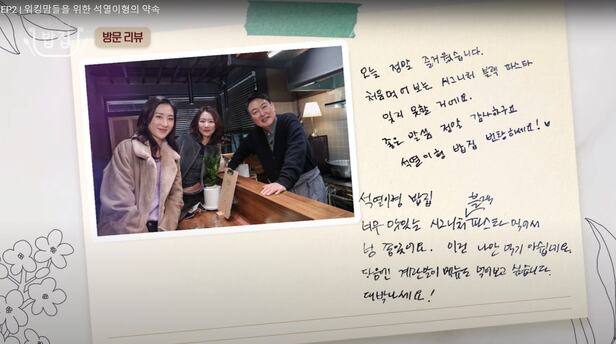 EP2 | 워킹맘들을 위한 석열이형의 약속
밥집
방문 리뷰
오늘 정말 즐거웠습니다.
처음먹어보는 시그니처 블랙 파스타
잊지 못할 거에요.
좋은 말씀 정말 감사하구요
석열이형 밥집 번창하세요!
석열이형 밥집
블랙
너무 맛있는 시그니처 파스타 먹어서
넘 좋았어요. 이건 나만 먹기 아쉽네요.
다음엔 계란말이 메뉴도 먹어보고 싶습니다.
대박나세요!